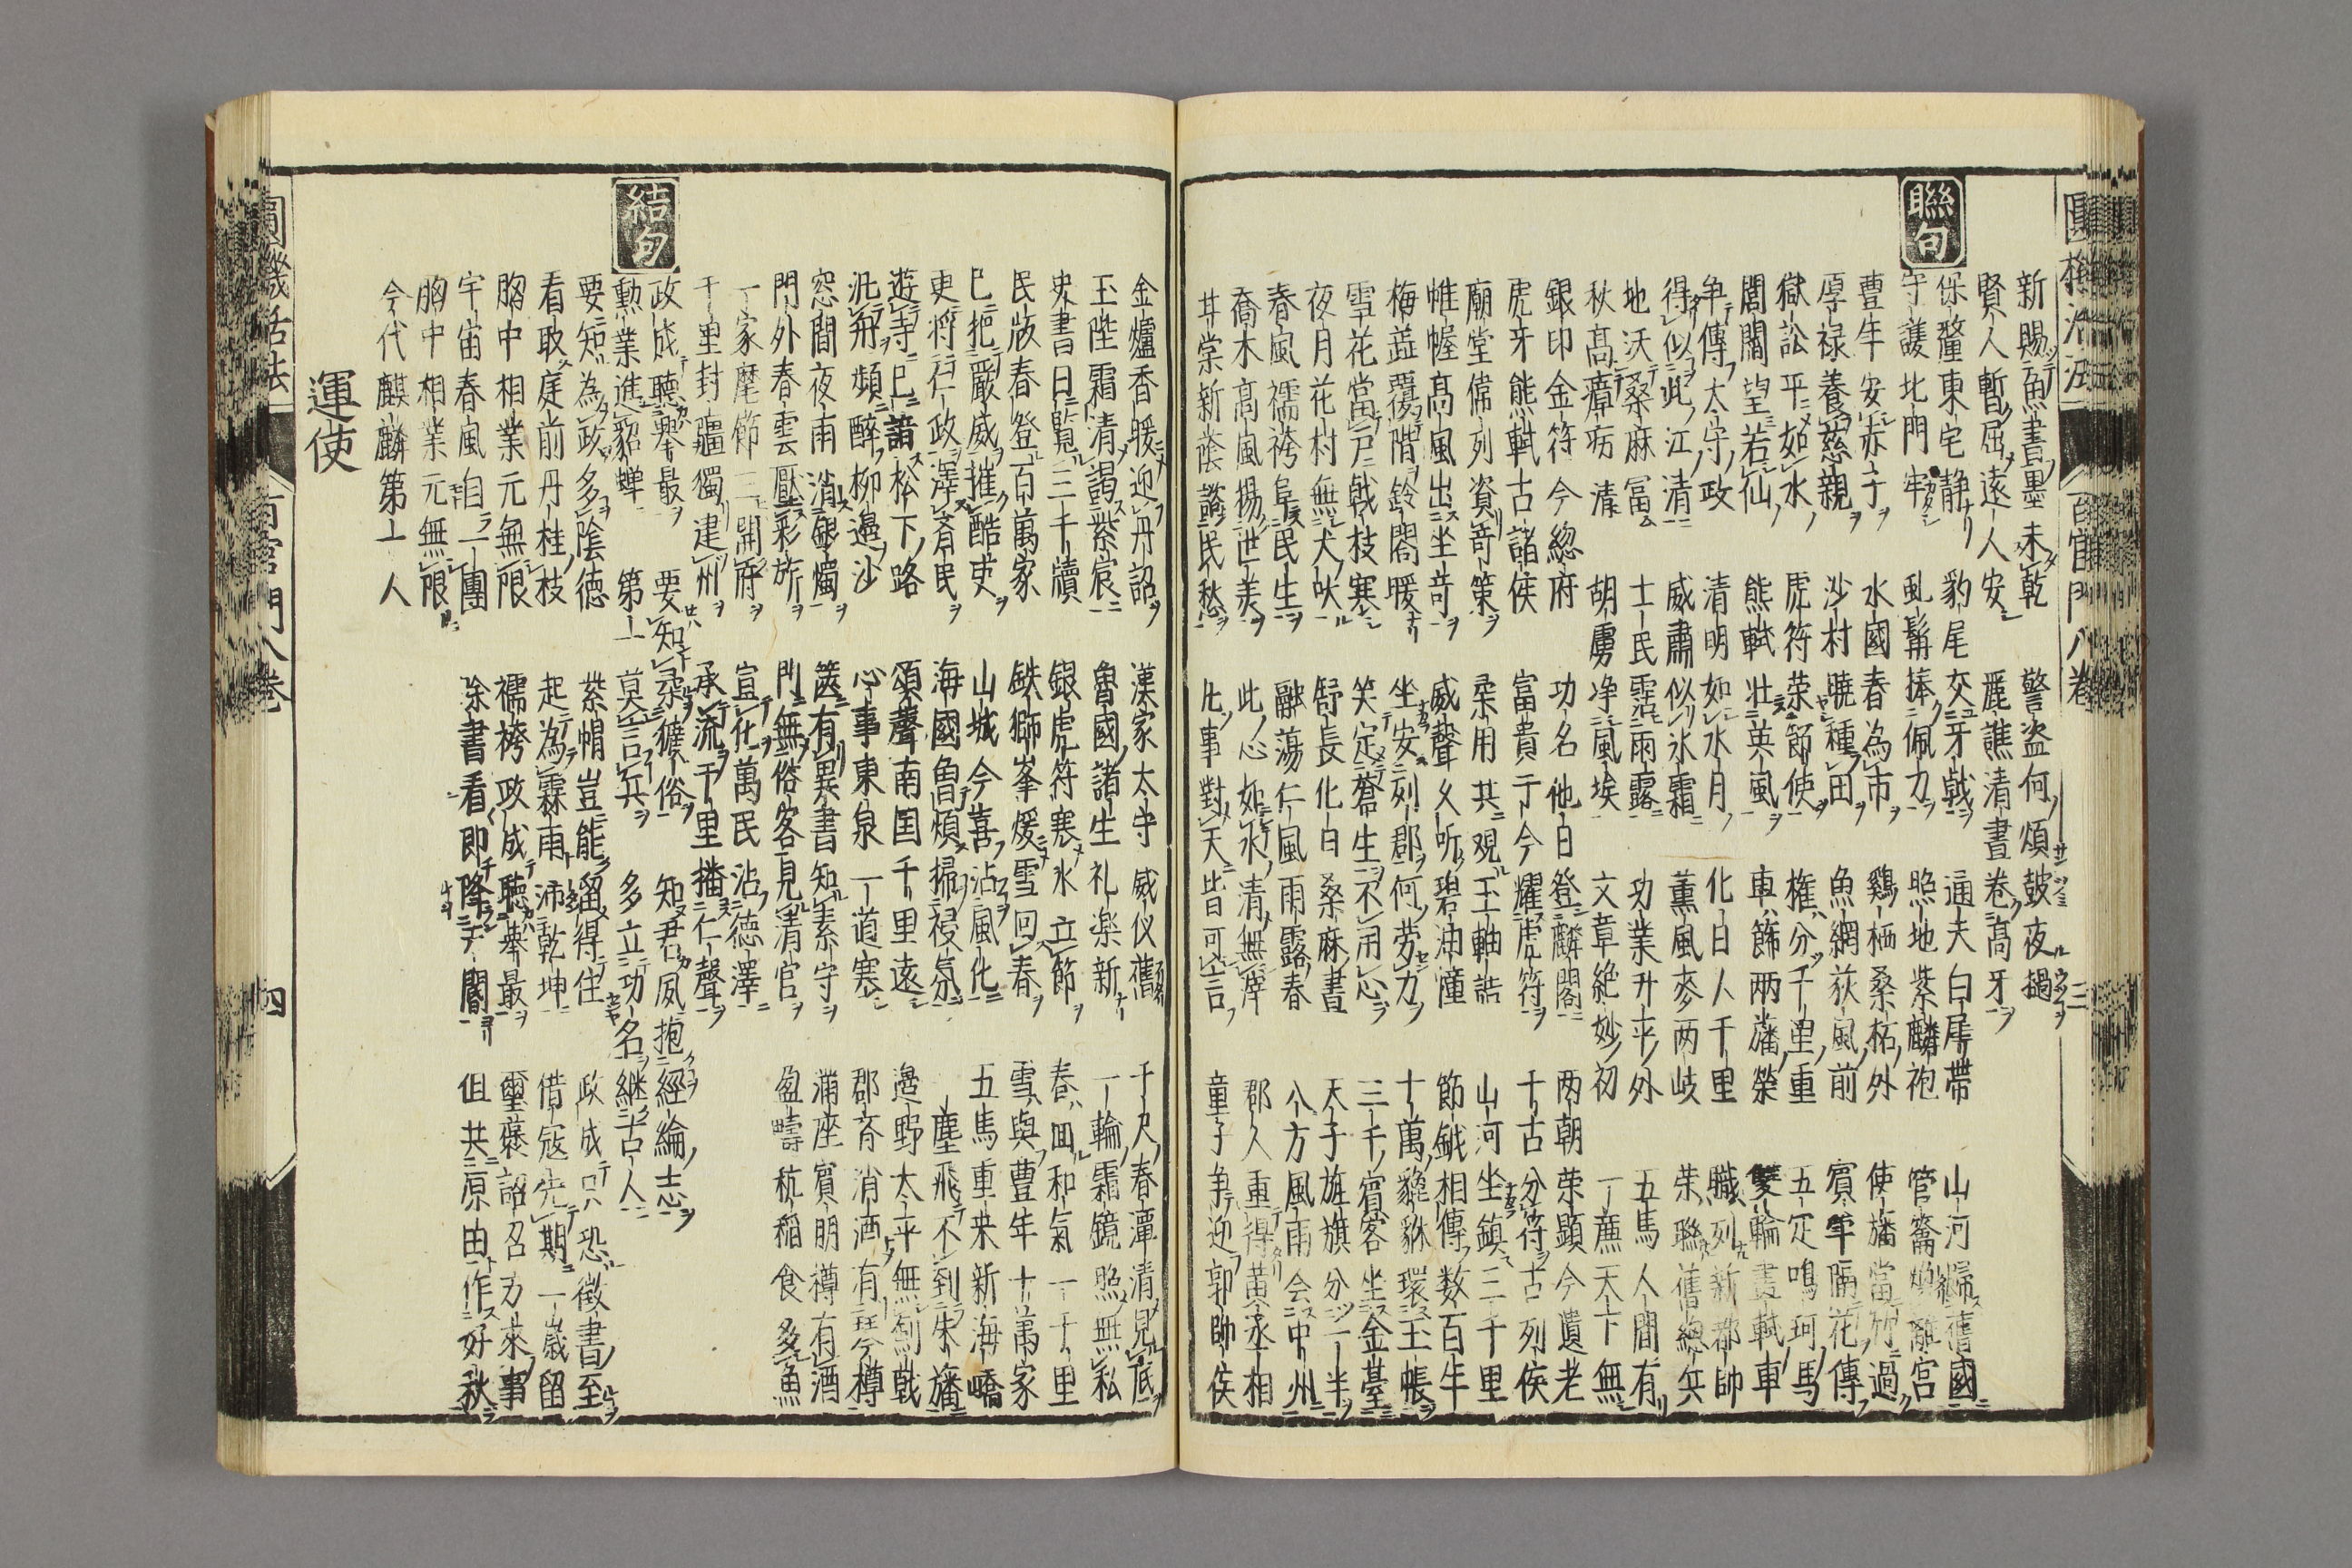 圓機活法
百官門八卷
三
聯句
新賜魚書墨未乾　警盜何煩鼓夜撾
賢人暫屈遠人安　麗譙清晝卷高牙
保釐東宅静　豹尾交牙戟　通天白犀帶　山河歸舊國
守護北門牢　虬鬚捧佩刀　照地紫麟袍　管籥離宮
豊年安赤子　水國春為市　鷄栖桑柘外　使旛當過
厚禄養慈親　沙村曉種田　魚網荻風前　賓隔花傳
獄訟平如水　虎符荣節使　権分千里重　五疋鳴珂馬
閭閻望若仙　熊軾壮英風　車篩两藩榮　雙輪畫軾車
争傳太守政　清明如水月　化日人千里　職列新郡帥
得似此江清　威肅似氷霜　薫風麥两岐　荣聯舊總兵
地沃桑麻冨　士民霑雨露　功業升平外　五馬人間有
秋高瘴疠清　胡虜净風埃　文章絶妙初　一麾天下無
銀印金符今総府　功名他日登麟閣　两朝荣顯今遺老
虎牙熊軾古諸侯　富貴于今耀虎符　千古分符古列侯
廟堂俻列資竒策　柔用共观玉軸誥　山河坐鎮三千里
帷幄高風出坐竒　威聲久听碧油幢　節鉞相傳数百年
梅蕋覆階鈴閤暖　坐安列郡何劳力　十萬貔貅環玉帳
雪花當戸戟枝寒　笑定蒼生不用心　三千賓客坐金臺
夜月花村無犬吠　舒長化日桑麻晝　天子旌旗分一半
春風襦袴阜民生　融蕩仁風雨露春　八方風雨会中州
喬木高風揚世美　此心如水清無滓　郡人重得黄丞相
甘棠新蔭民愁　凡事對天皆可言　童子争迎郭帥侯
金爐香暖迎丹詔　漢家太守威仪舊　千尺春潭清見底
玉陛霜清謁紫宸　魯國諸生礼楽新　一輪霜鏡照無私
史書日覧三千牘　銀虎符寒氷立節　春回和氣一千里
民版春登百萬家　鉄獅峯煖雪回春　雪與豊年十萬家
已把嚴威摧酷吏　山城今喜沾風化　五馬重来新海嶠
更将仁政澤斉民　海國曽煩掃祲氛　一塵飛不到朱旛
遊寺已諳松下路　頌聲南国千里遠　邉野太平無剱戟
汎舟頻醉柳邉沙　心事東泉一道寒　郡斉消酒有琴樽
窓間夜雨消銀燭　篋有異書知素守　滿座賓朋樽有酒
門外春雲壓彩旂　門無俗客見清官　盈疇秔稲食多魚
一家麾節三開府　宣化萬民沾徳澤
千里封疆獨建州　承流千里播仁聲
結句
政成聴舉最　要知柔獷俗　知君夙抱經綸志
勲業進貂蝉　第一莫言兵　多立功名継古人
要知為政多陰徳　紫帽豈能留得住　政成只恐徴書至
看取庭前丹桂枝　起為霖雨沛乾坤　借寇先期一歳留
胸中相業元無限　襦袴政成聴舉最　璽褒詔召方來事
宇宙春風自一團　除書看即降天閽　但共原田作好秋
胸中相業元無限
今代麒麟第一人
運使
圓機活法
百官門八卷
四